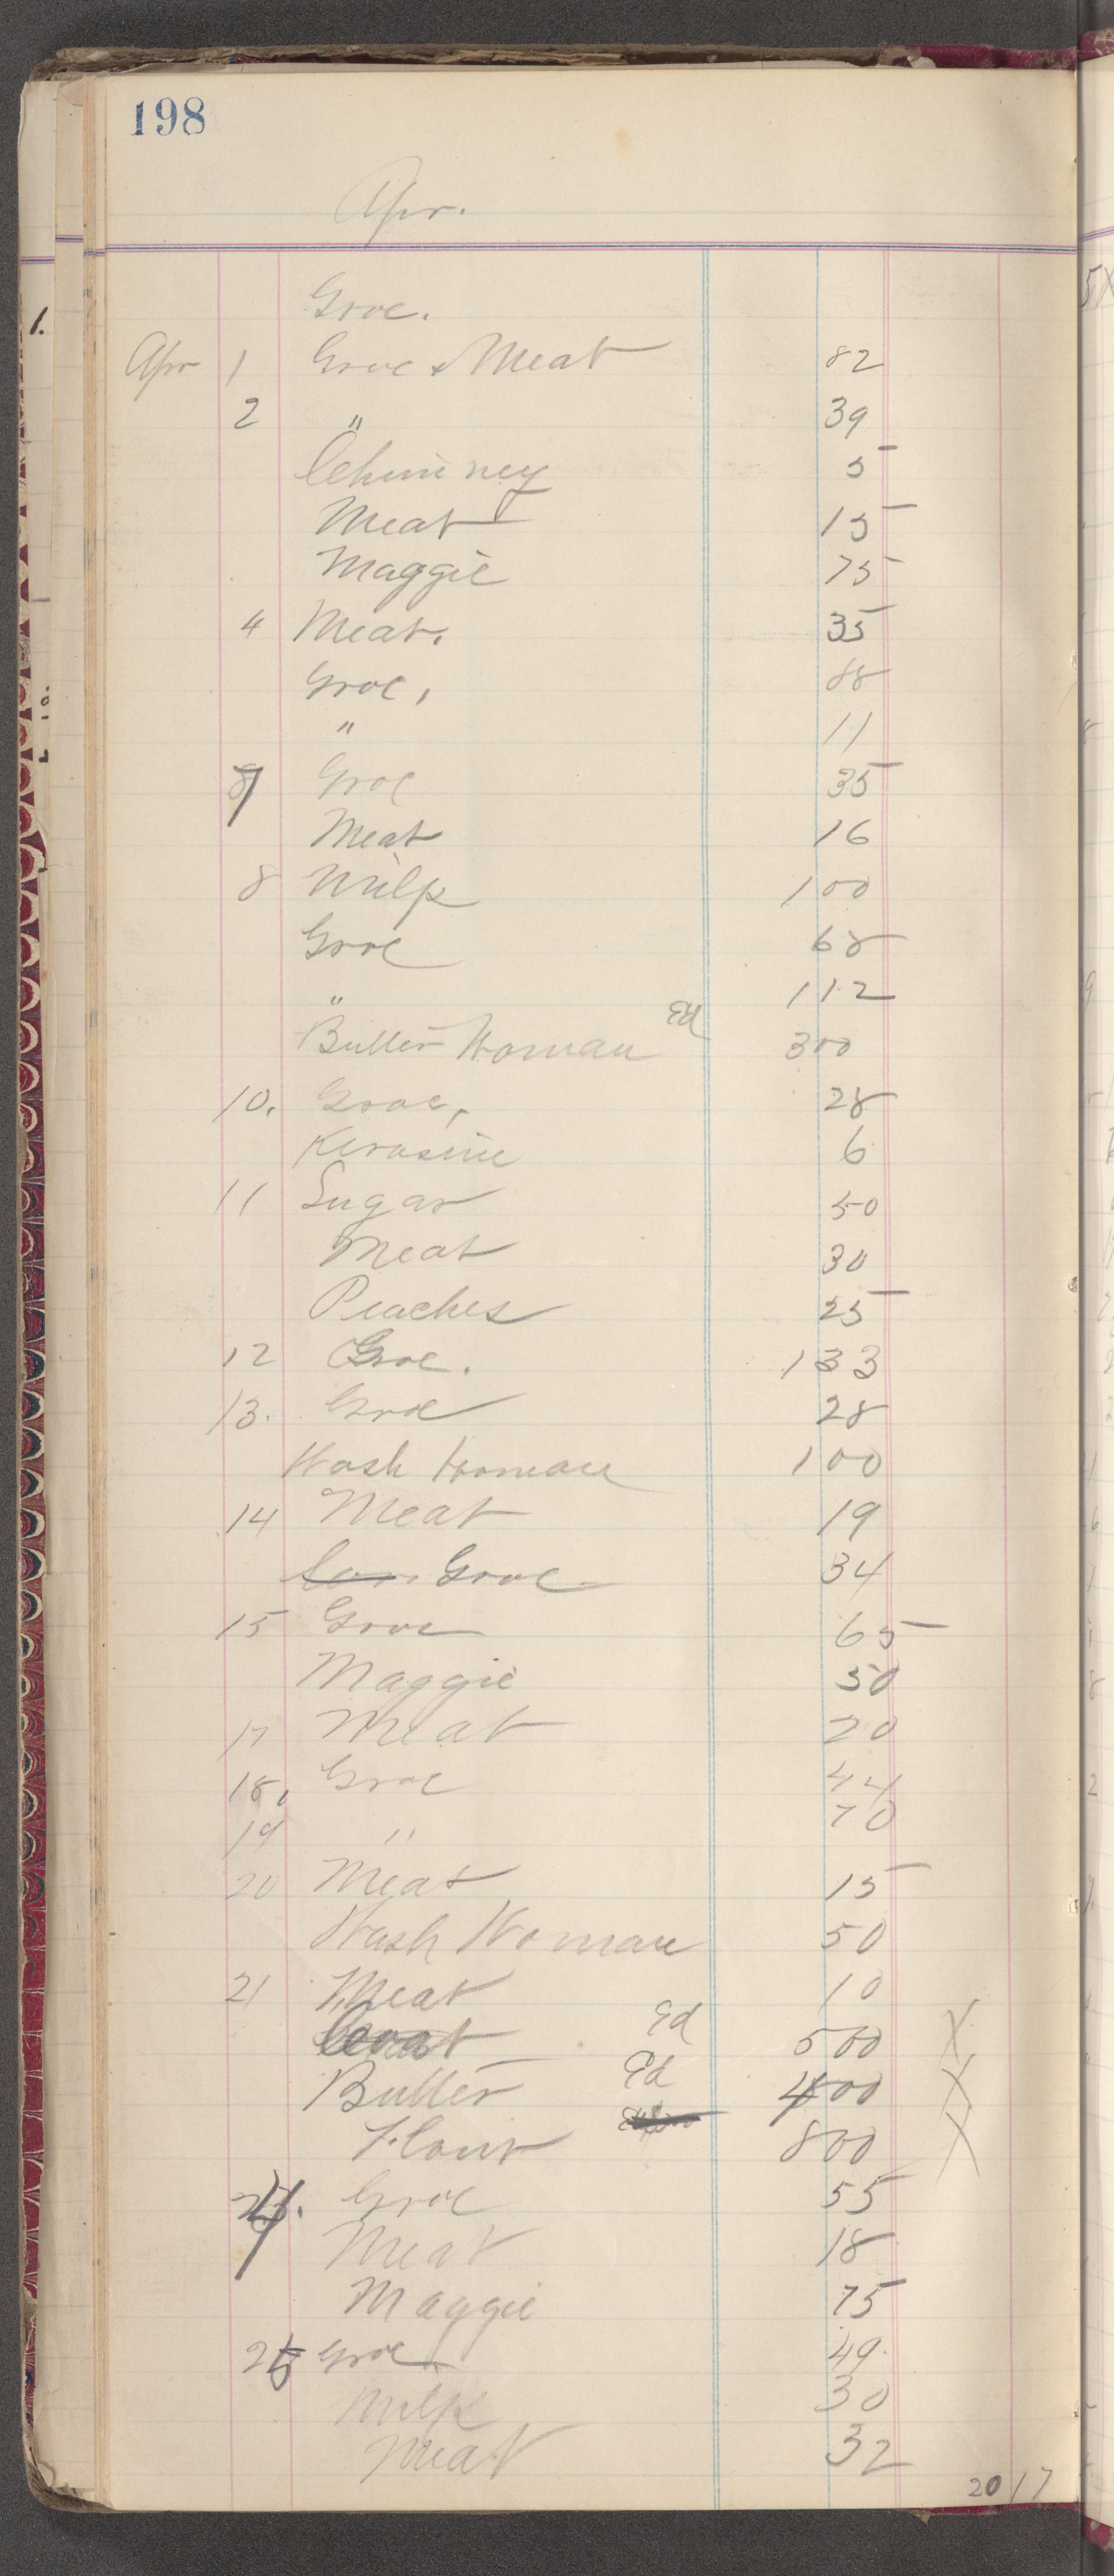 198
Apr.
Groc.
Apr 1 Groc & Meat 82
2 " 39
Chimney 5
Meat 15
Maggie 75
4 Meat. 35
Groc, 88
" 11
7 Groc 35
Meat 16
8 Milk 100
Groc 68
" 112
Butter Woman Ed 300
10. Groc, 28
Kerosine 6
11 Sugar 50
Meat 30
Peaches 25
12 Groc. 133
13. Groc 28
Wash Woman 100
14 Meat 19
Groc 34
15 Groc 65
Maggie 50
17 Meat 20
18. Groc 44
19 " 70
20 Meat 15
Wash Woman 50
21 Meat 10
Ed 500 X
Butter Ed 400 X
Flour 800 X
Groc 55
Meat 18
Maggie 75
25 Groc. 49
Milk 30
Meat 32
2017